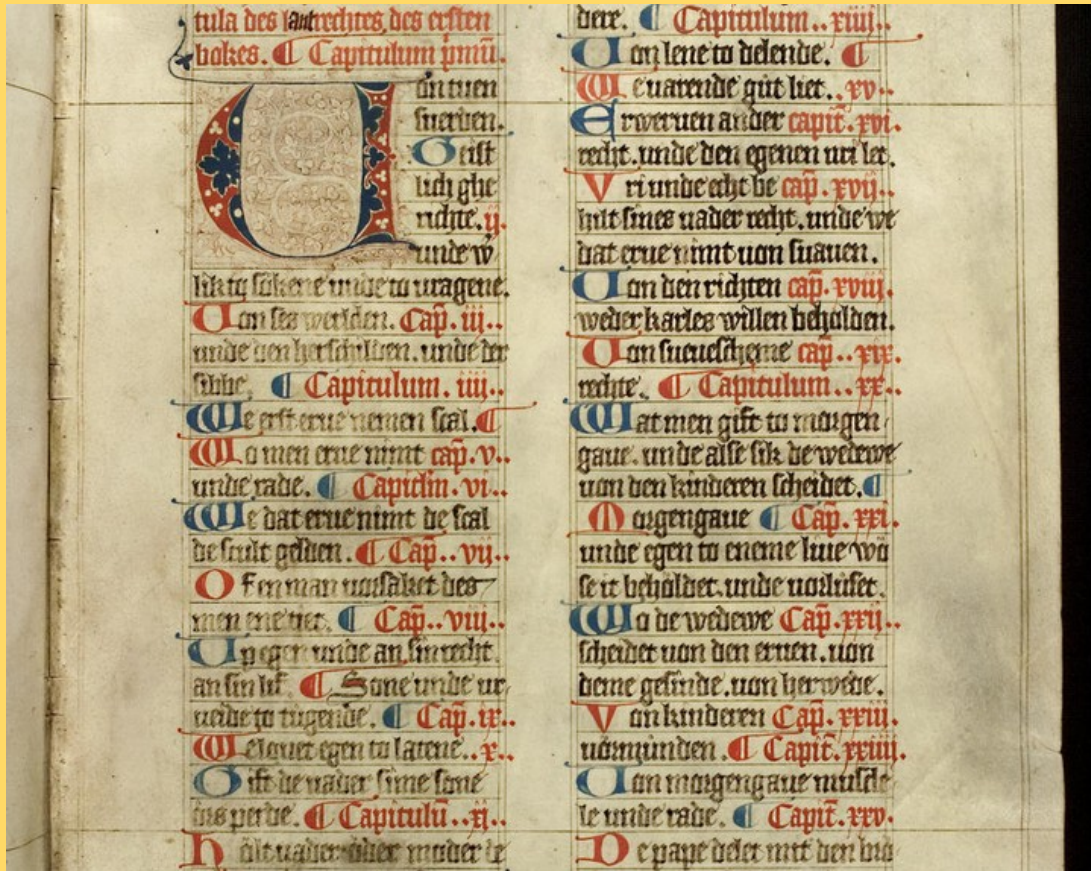 tula des lantrechtes des ersten
bokes. ¶ Capitulum pͥmū.
Uon tuen
suerden.
Geist
lich ghe
richte. ij.
unde w̄
lik to sokene unde to uragene.
Uon ses werlden. Cap̄. iij..
unde den herschilden. unde der
sibbe. ¶ Capitulum. iiij..
We erst erue nemen scal. ¶
Wo men erue nimt cap̄. v..
unde rade. ¶ Capitlm̄. vi..
We dat erue nimt de scal
de scult gelden. ¶ Cap̄.. vij..
Of en man uorsaket des
men ene tiet. ¶ Cap̄.. viij..
Up egen unde an sin recht.
an sin lif. ¶ Sone unde ur
ueide to tugende. ¶ Cap̄. ix..
We egen to latene.. x..
Gift de uader sime sone
ors perde. ¶ Capitulū.. xj..
Holt uader oder muder de
dere. ¶ Capitulum.. xiiij..
Uon lene to delende. ¶
We uarende gut liet.. xv..
Erweruen ander capit̄. xvi.
recht. unde den egenen uri let.
Vri unde echt be cap̄. xvij..
hilt sines uader recht. unde we
dat erue nimt uon suauen.
Uon den richten cap̄. xviij.
weder karles willen beholden.
Uon sueuescheme cap̄.. xix.
rechte. ¶ Capitulum.. xx..
Wat men gift to morgen
gaue. unde alse sik de wedewe
uon den kinderen scheidet. ¶
Morgengaue ¶ Cap̄. xxi.
unde egen to eneme liue wo
se it beholdet. unde uorluset.
Wo de wedewe Cap̄. xxij.
scheidet uon den eruen. uon
deme gesinde. uon herwede.
Von kinderen Cap̄. xxiij.
uormunden. ¶ Capit̄. xxiiij.
Uon morgengaue musde
le unde rade. ¶ Capit̄. xxv.
De pape delet mit den bro